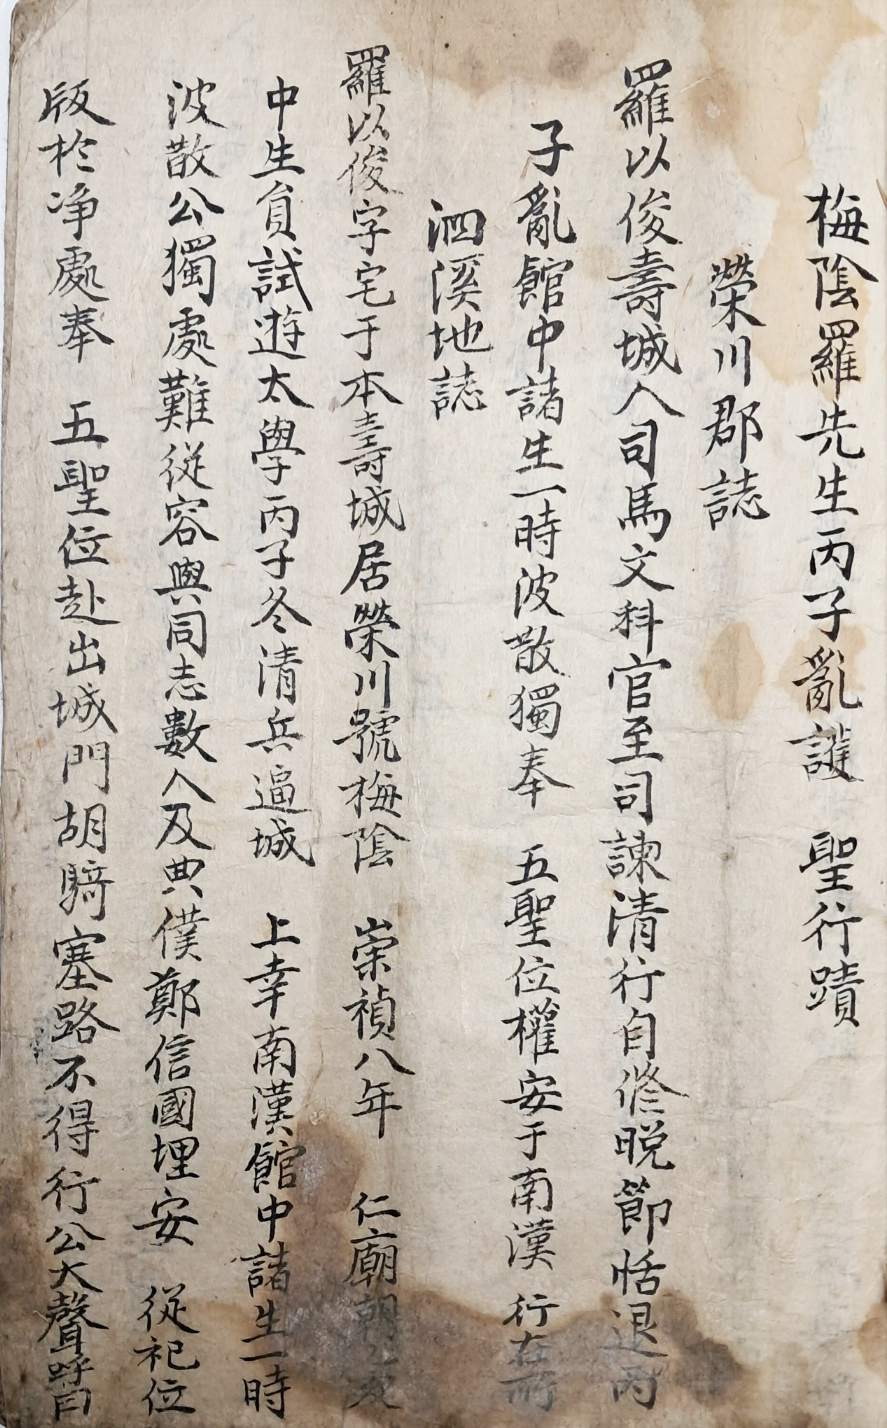 梅陰羅先生丙子亂護 聖行蹟
榮川郡誌
羅以俊壽城人司馬文科官至司諫清行自修晩節恬退丙
子亂館中諸生一時波散獨奉 五聖位權安于南漢 行在所
泗溪地誌
羅以俊字宅于本壽城居榮川號梅陰 崇禎八年 仁廟朝
中生員試遊太學丙子冬清兵逼城 上幸南漢館中諸生一時
波散公獨處難從容與同志數人及典僕鄭信國埋安 從祀位
版於净處奉 五聖位赴出城門胡騎塞路不得行公大聲